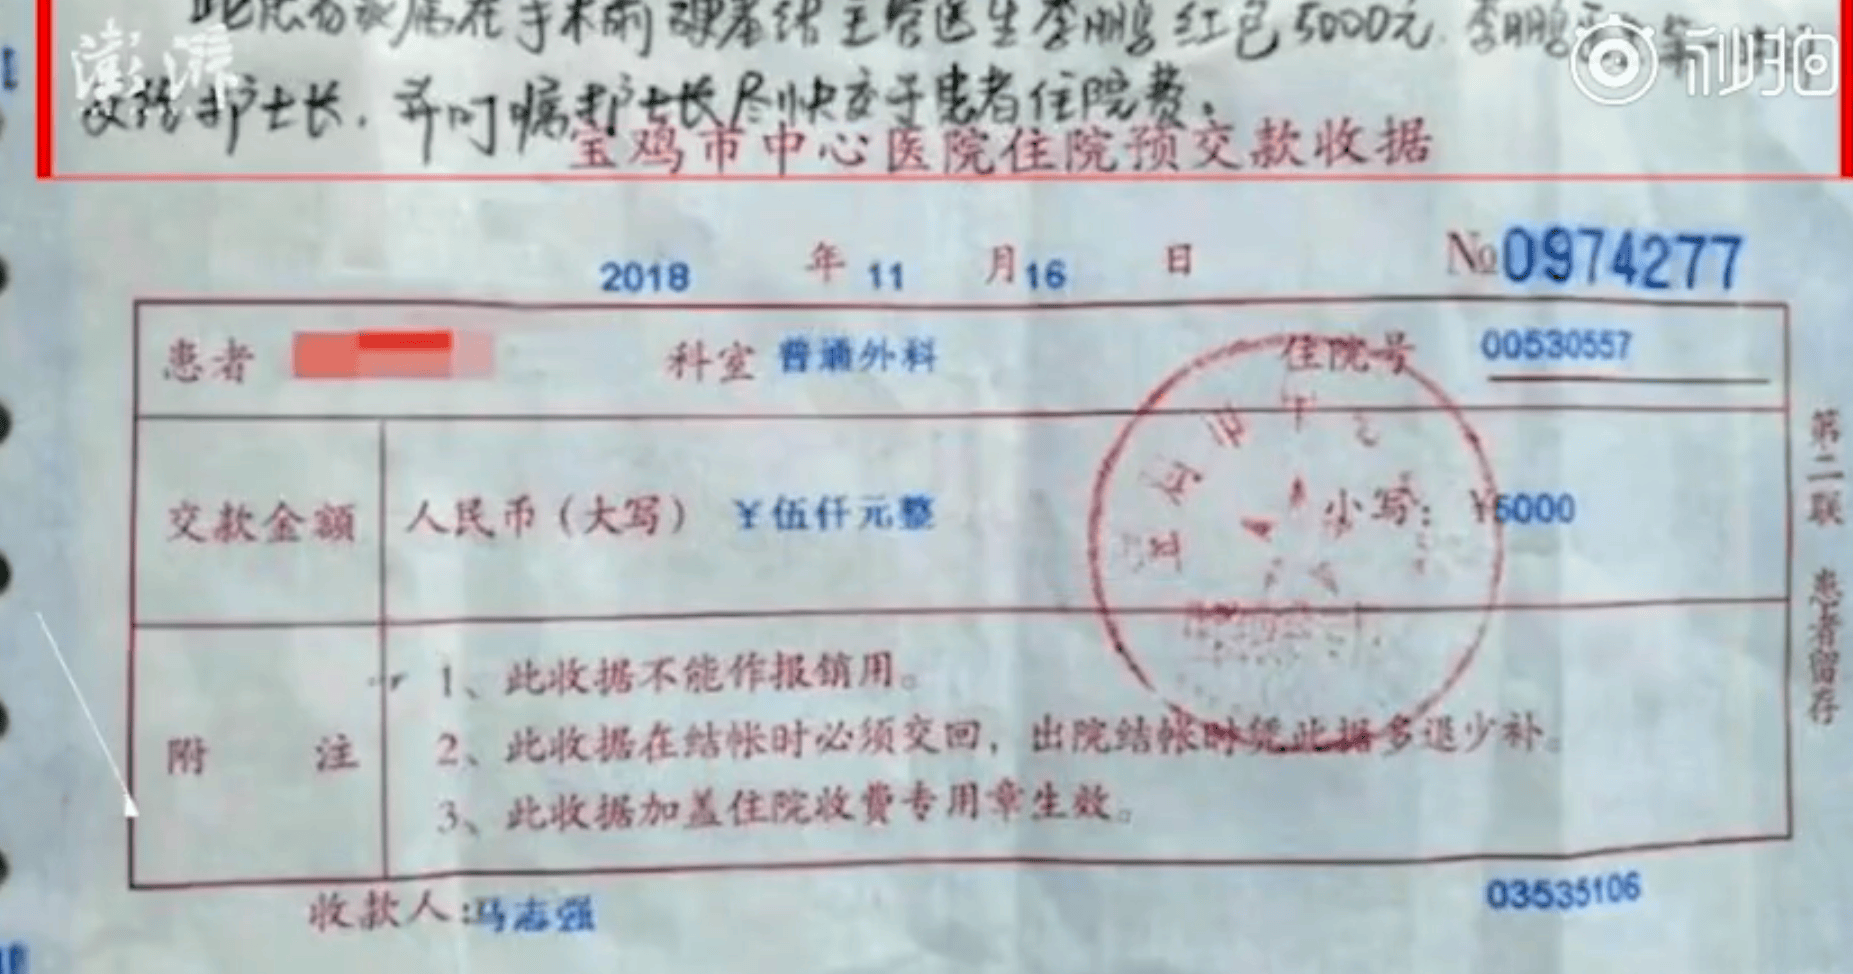 此患者家属在手术前硬塞给主管医生李鹏 红包5000元. 李鹏
澎湃
秒拍
交给护士长. 并叮嘱护士长尽快交于患者住院费。
宝鸡市中心医院住院预交款收据
2018 年 11 月 16 日 №0974277
患者 科室 普通外科 住院号 00530557
交款金额 人民币（大写） ￥伍仟元整 小写： ￥5000
附 注
1、此收据不能作报销用。
2、此收据在结帐时必须交回，出院结帐时凭此据多退少补。
3、此收据加盖住院收费专用章生效。
第二联 患者留存
收款人：马志强 03535106